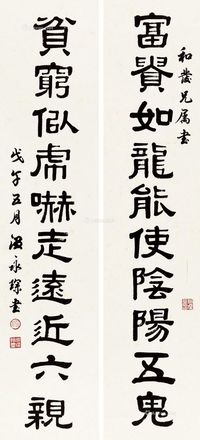 和發兄属书
富貴如龍能使陰陽五鬼
貧窮似虎嚇走遠近六親
戊午五月 永 書